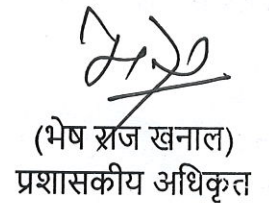 (भेष राज खनाल)
प्रशासकीय अधिकृत